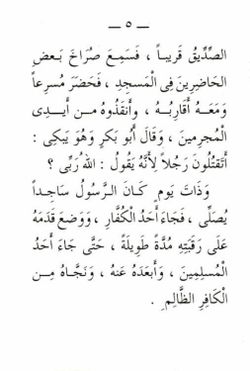 — ٥ —
الصِّدِّيقُ قَرِيباً ، فَسَمِعَ صُرَاخَ بَعْضِ
الحَاضِرِينَ فِى الْمَسجِدِ ، فَحَضَرَ مُسرِعاً
وَمَعَهُ أَقَارِبُهُ ، وأَنقَذُوهُ مِن أَيدِى
المُجرِمِينَ ، وَقَالَ أَبُو بَكرٍ وَهُوَ يَبكِى :
أَتَقتُلُونَ رَجُلاً لِأَنَّهُ يَقُولُ : اللهُ رَبِّى ؟
وَذَاتَ يَومٍ كَانَ الرَّسُولُ سَاجِداً
يُصَلِّى ، فَجَاءَ أَحَدُ الكُفَّارِ ، وَوَضَعَ قَدَمَهُ
عَلَى رَقَبَتِهِ مُدَّةً طَوِيلَةً ، حَتَّى جَاءَ أَحَدُ
المُسلِمِينَ ، وَأَبعَدَهُ عَنهُ ، وَنَجَّاهُ مِنَ
الْكَافِرِ الظَّالِمِ .